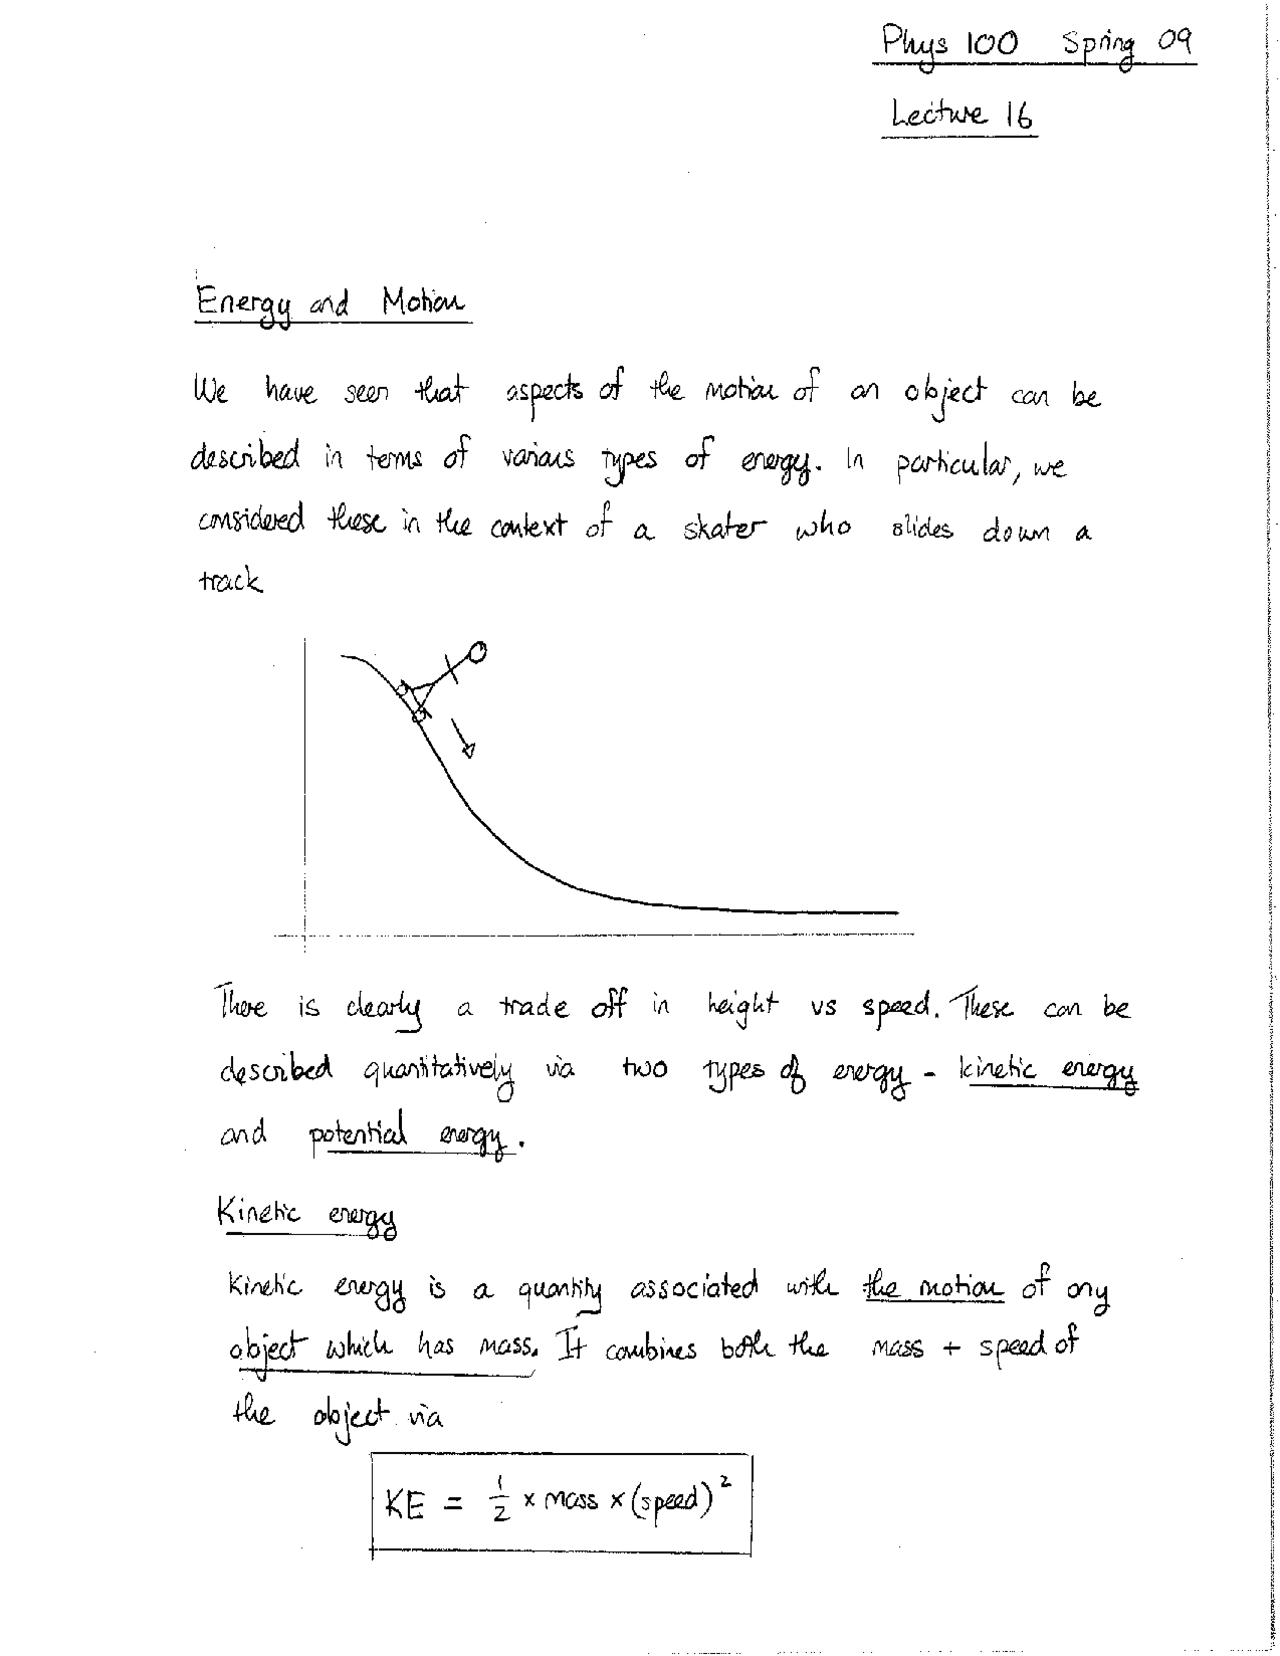 Phys 100 Spring 09
Lecture 16
Energy and Motion
We have seen that aspects of the motion of an object can be
described in terms of various types of energy. In particular, we
considered these in the context of a skater who slides down a
track
There is clearly a trade off in height vs speed. These can be
described quantitatively via two types of energy - kinetic energy
and potential energy.
Kinetic energy
Kinetic energy is a quantity associated with the motion of any
object which has mass. It combines both the mass + speed of
the object via
KE = 1/2 × mass × (speed)²